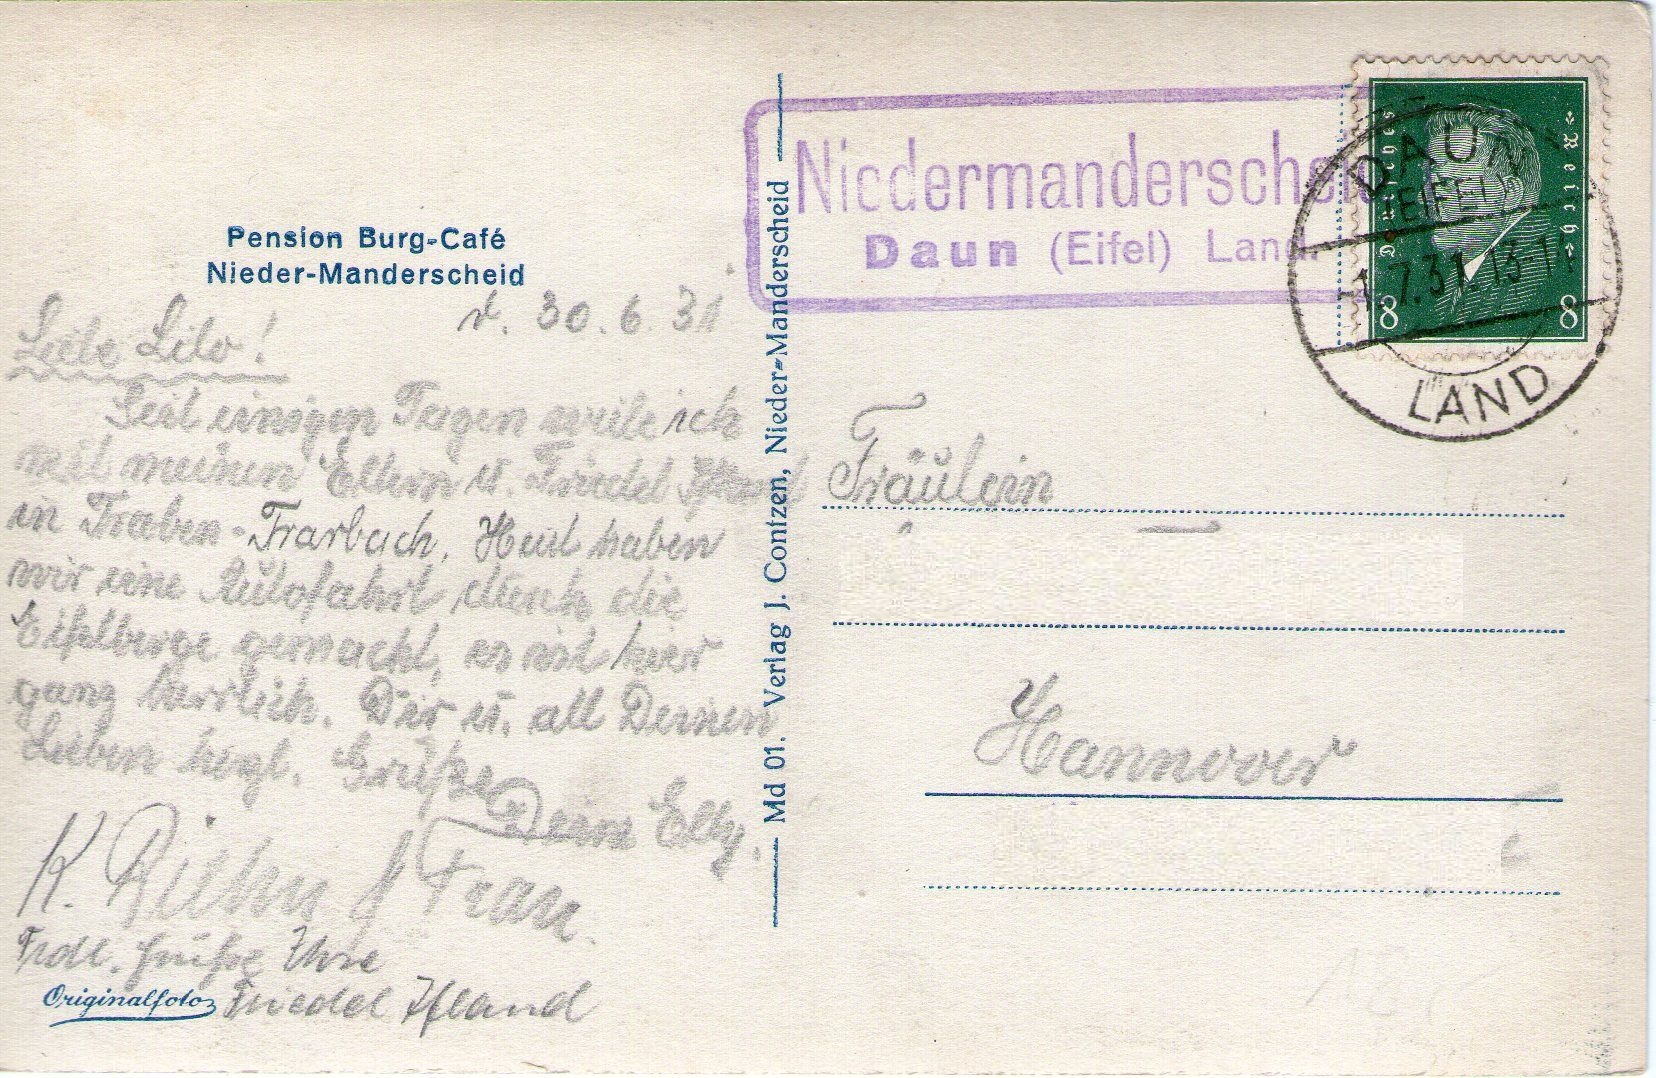 Pension Burg-Café
Nieder-Manderscheid
d. 30.6.31
Liebe Lilo!
Seit einigen Tagen weile ich
mit meinen Eltern u. Friedel Ifland
in Traben-Trarbach. Heut haben
wir eine Autofahrt durch die
Eifelberge gemacht, es ist hier
ganz herrlich. Dir u. all Deinen
Lieben hrzl. Grüße
Dein Elly.
K. Frau.
Frdl. Grüße Ihre
Friedel Ifland
Originalfoto
Md 01. Verlag J. Contzen, Nieder-Manderscheid
Niedermanderscheid
Daun (Eifel) Land.
Deutsches Reich
8 8
DAUN
(EIFEL)
1.7.31.13-14
LAND
Fräulein
Hannover